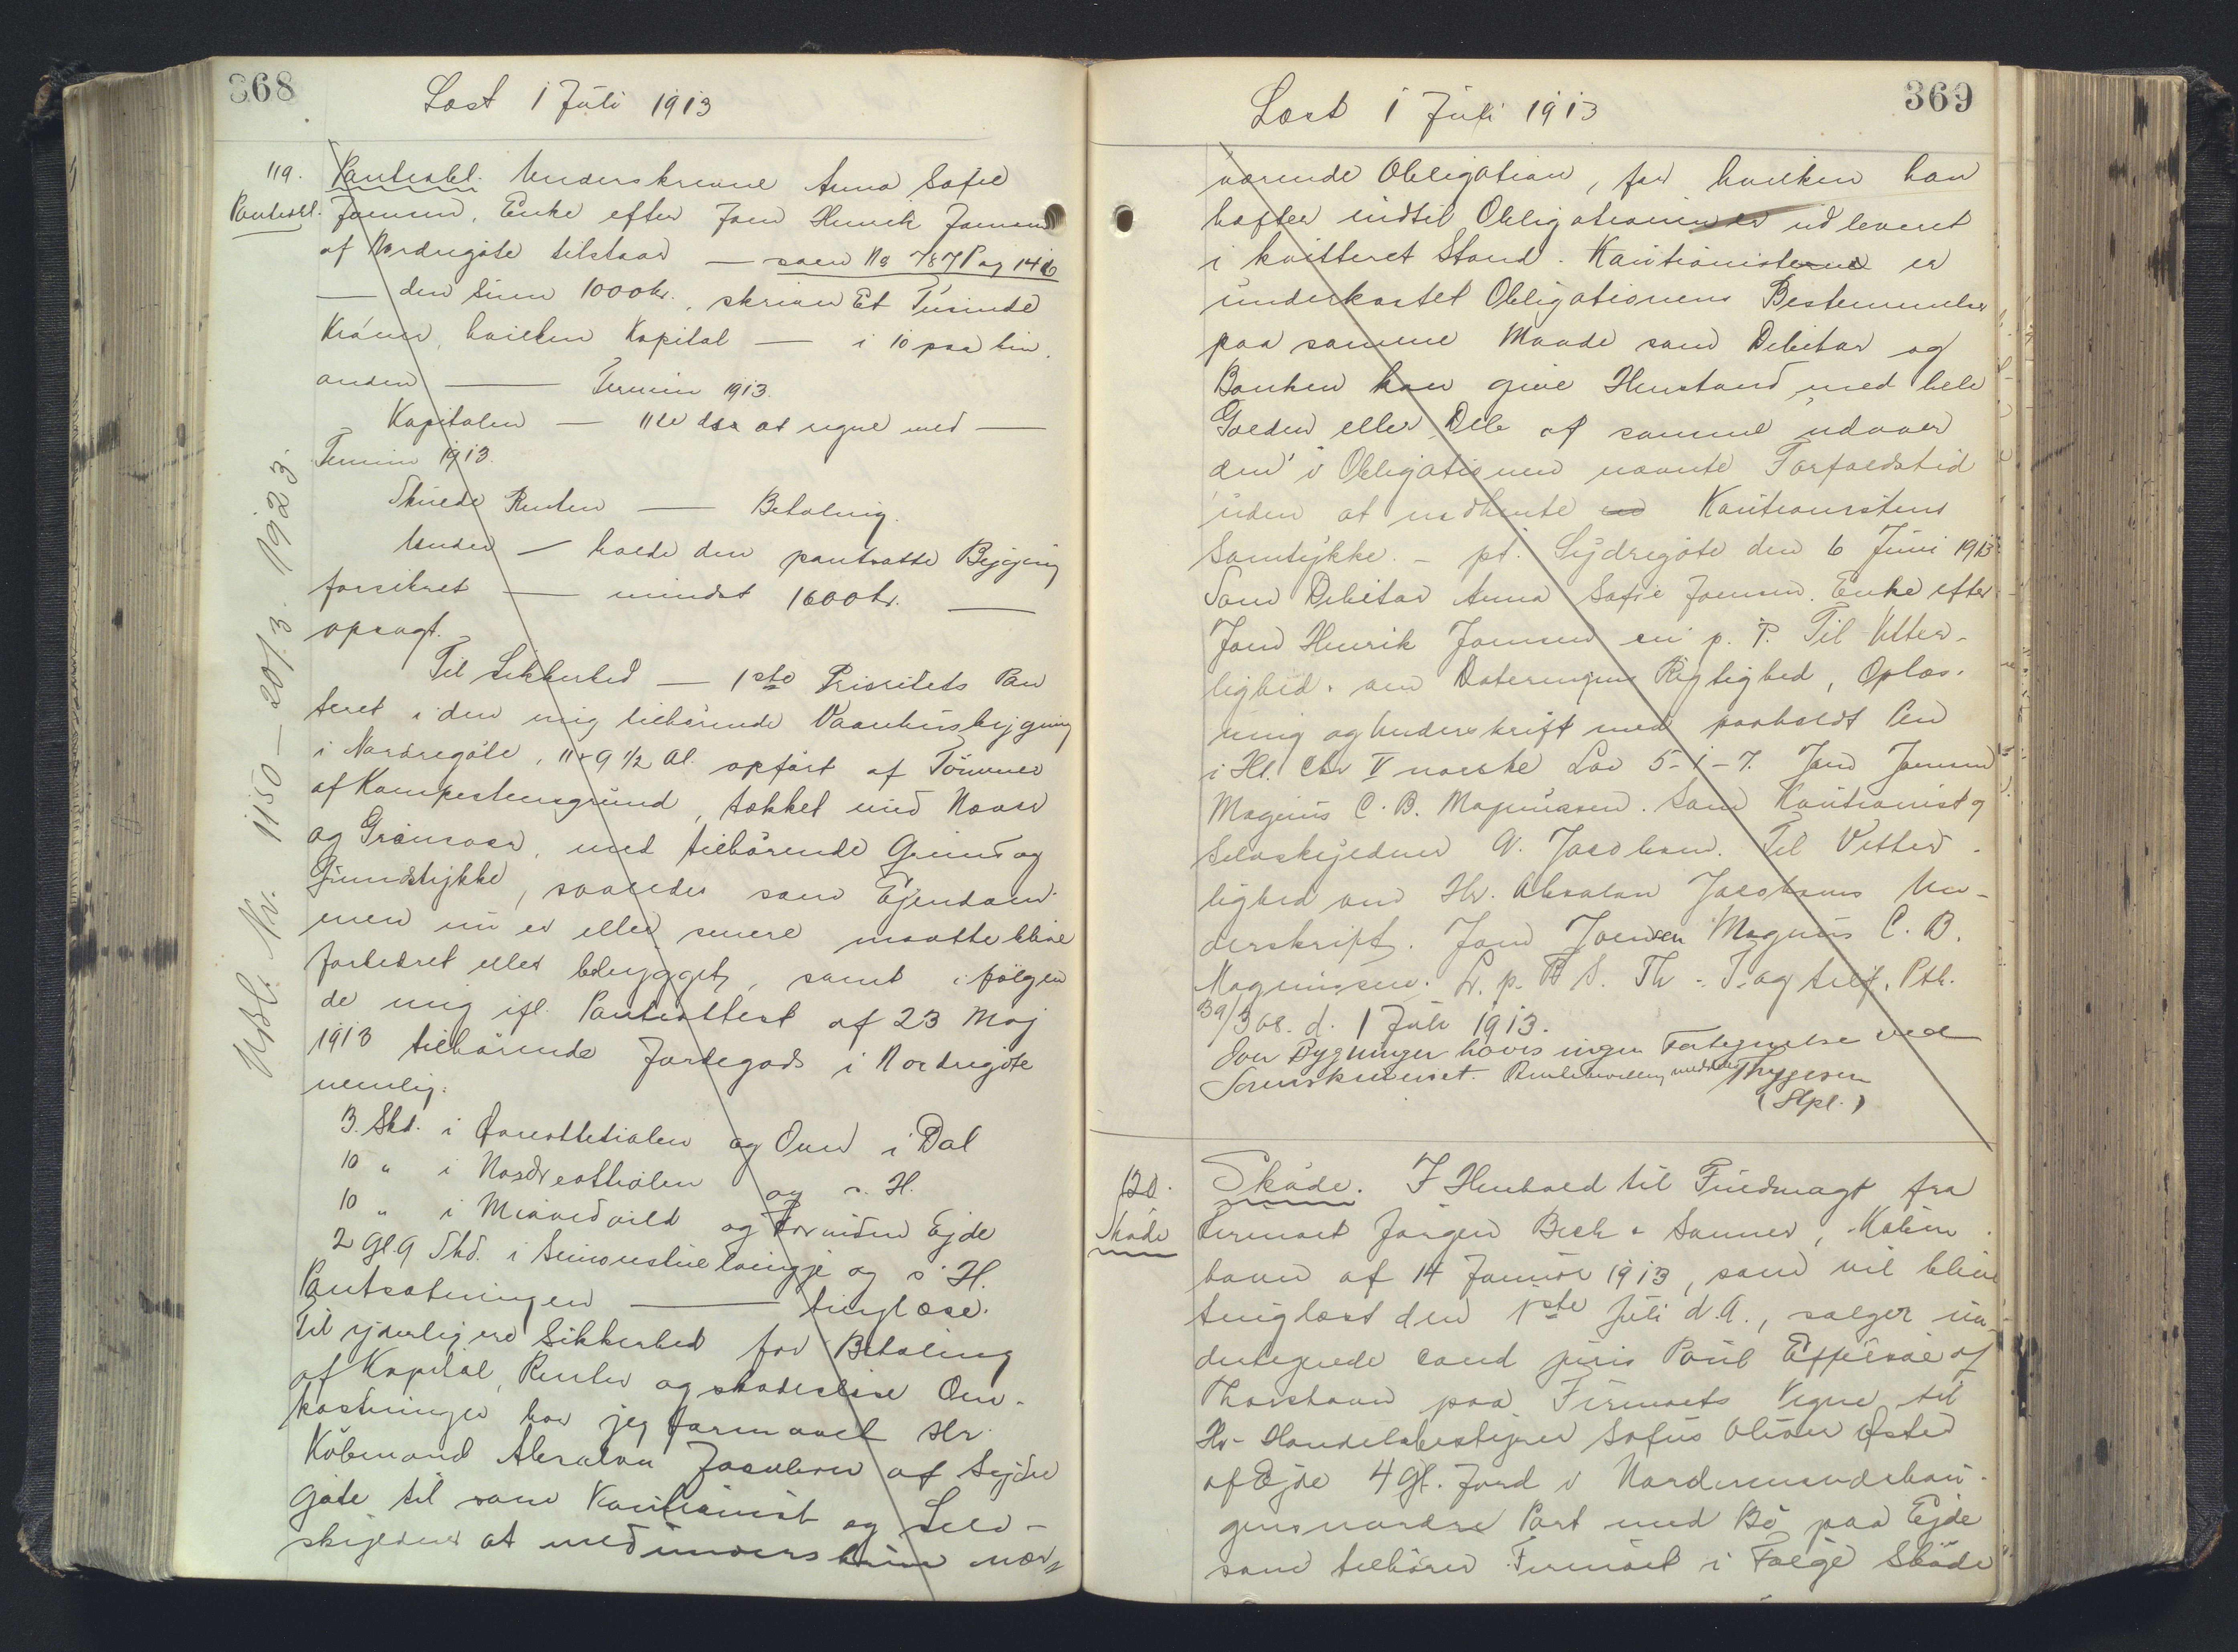 368
Læst 1 Juli 1913
119.
Panteobl.
Panteobl. Underskrevne Anna Sofie
Joensen, Enke efter Joen Henrik Joensen
af Nordregøte tilstaar — som No 787 Pag 146
— den Sum 1000 Kr., skriver Et Tusinde
Kroner, hvilken Kapital — i 10 paa hin-
anden — Termin 1913.
Kapitalen — 11te dsr at regne med —
Termin 1913.
Skulde Renten — Betaling.
Under — holde den pantsatte Bygning
forsikret — mindst 1600 Kr. —
opsagt.
Til Sikkerhed — 1ste Prioritets Pan
teret i den mig tilhørende Vaanhusbygning
i Nordregøte, 11 x 9 1/2 Al. opført af Tømmer
af Kampestensgrund, tækket med Næver
og Grønsvær, med tilhørende Grund og
Grundstykke, saaledes som Ejendom-
men nu er eller senere maatte blive
forbedret eller bebygget, samt i følgen
de mig ifl. Panteattest af 23 Maj
1913 tilhørende Jordegods i Nordregøte
nemlig:
3. Skd. i og Ouw i Dal
10 " i og s. H.
10 " i og Ejde
2 Gl 9 Skd. i og s. H.
Pantsætningen — tinglæse.
Til yderligere Sikkerhed for Betaling
af Kapital, Renter og skadesløse Om-
kostninger har jeg formaaet Hr.
Købmand Absalon Jacobsen af Sydre
gøte til som Kautionist og Selv-
skyldner at medunderskrive nær-
Udsl. Nr. 1150 — 20/3. 1923.
369
Læst 1 Juli 1913
værende Obligation, for hvilken han
hæfter indtil Obligationen er udleveret
i kvitteret Stand. Kautionisterne er
underkastet Obligationens Bestemmelser
paa samme Maade som Debitor og
Banken kan give Henstand med hele
Gælden eller Dele af samme udover
den i Obligationen nævnte Forfaldstid
uden at indhente en Kautionistens
Samtykke. - pt. Sydregøte den 6 Juni 1913
Som Debitor Anna Sofie Joensen. Enke efter
Joen Henrik Joensen m. p. P. Til Vitter-
lighed om Dateringens Rigtighed, Oplæs-
ning og Underskrift med paaholdt Pen
i Hl. Chr V norske Lov 5-1-7. Joen Joensen
Magnus C. B. Magnussen. Som Kautionist og
Selvskyldner A. Jacobsen. Til Vitter-
lighed om Hr. Absalon Jacobsens Un-
derskrift. Joen Joensen Magnus C. B.
Magnussen. L. p. Th. T. og tilf. Ptb.
39/308. d. 1 Juli 1913.
Over Bygninger haves ingen Fortegnelse ved
Sorenskriveriet. Thygesen
(Stpl.)
120.
Skøde
Skøde. I Henhold til Fuldmagt fra
Firmaet Jørgen Bech & Sønner, Køben-
havn af 14 Januar 1913, som vil blive
tinglæst den 1ste Juli d. A., sælger un-
dertegnede cand juris Poul Effersøe af
Thorshavn paa Firmaets Vegne til
Hr. Handelsbestyrer Sofus Oliver Østed
af Ejde 4 Gl. Jord i Nordremandshau-
gens nordre Part med Bø paa Ejde
som tilhører Firmaet i Følge Skøde